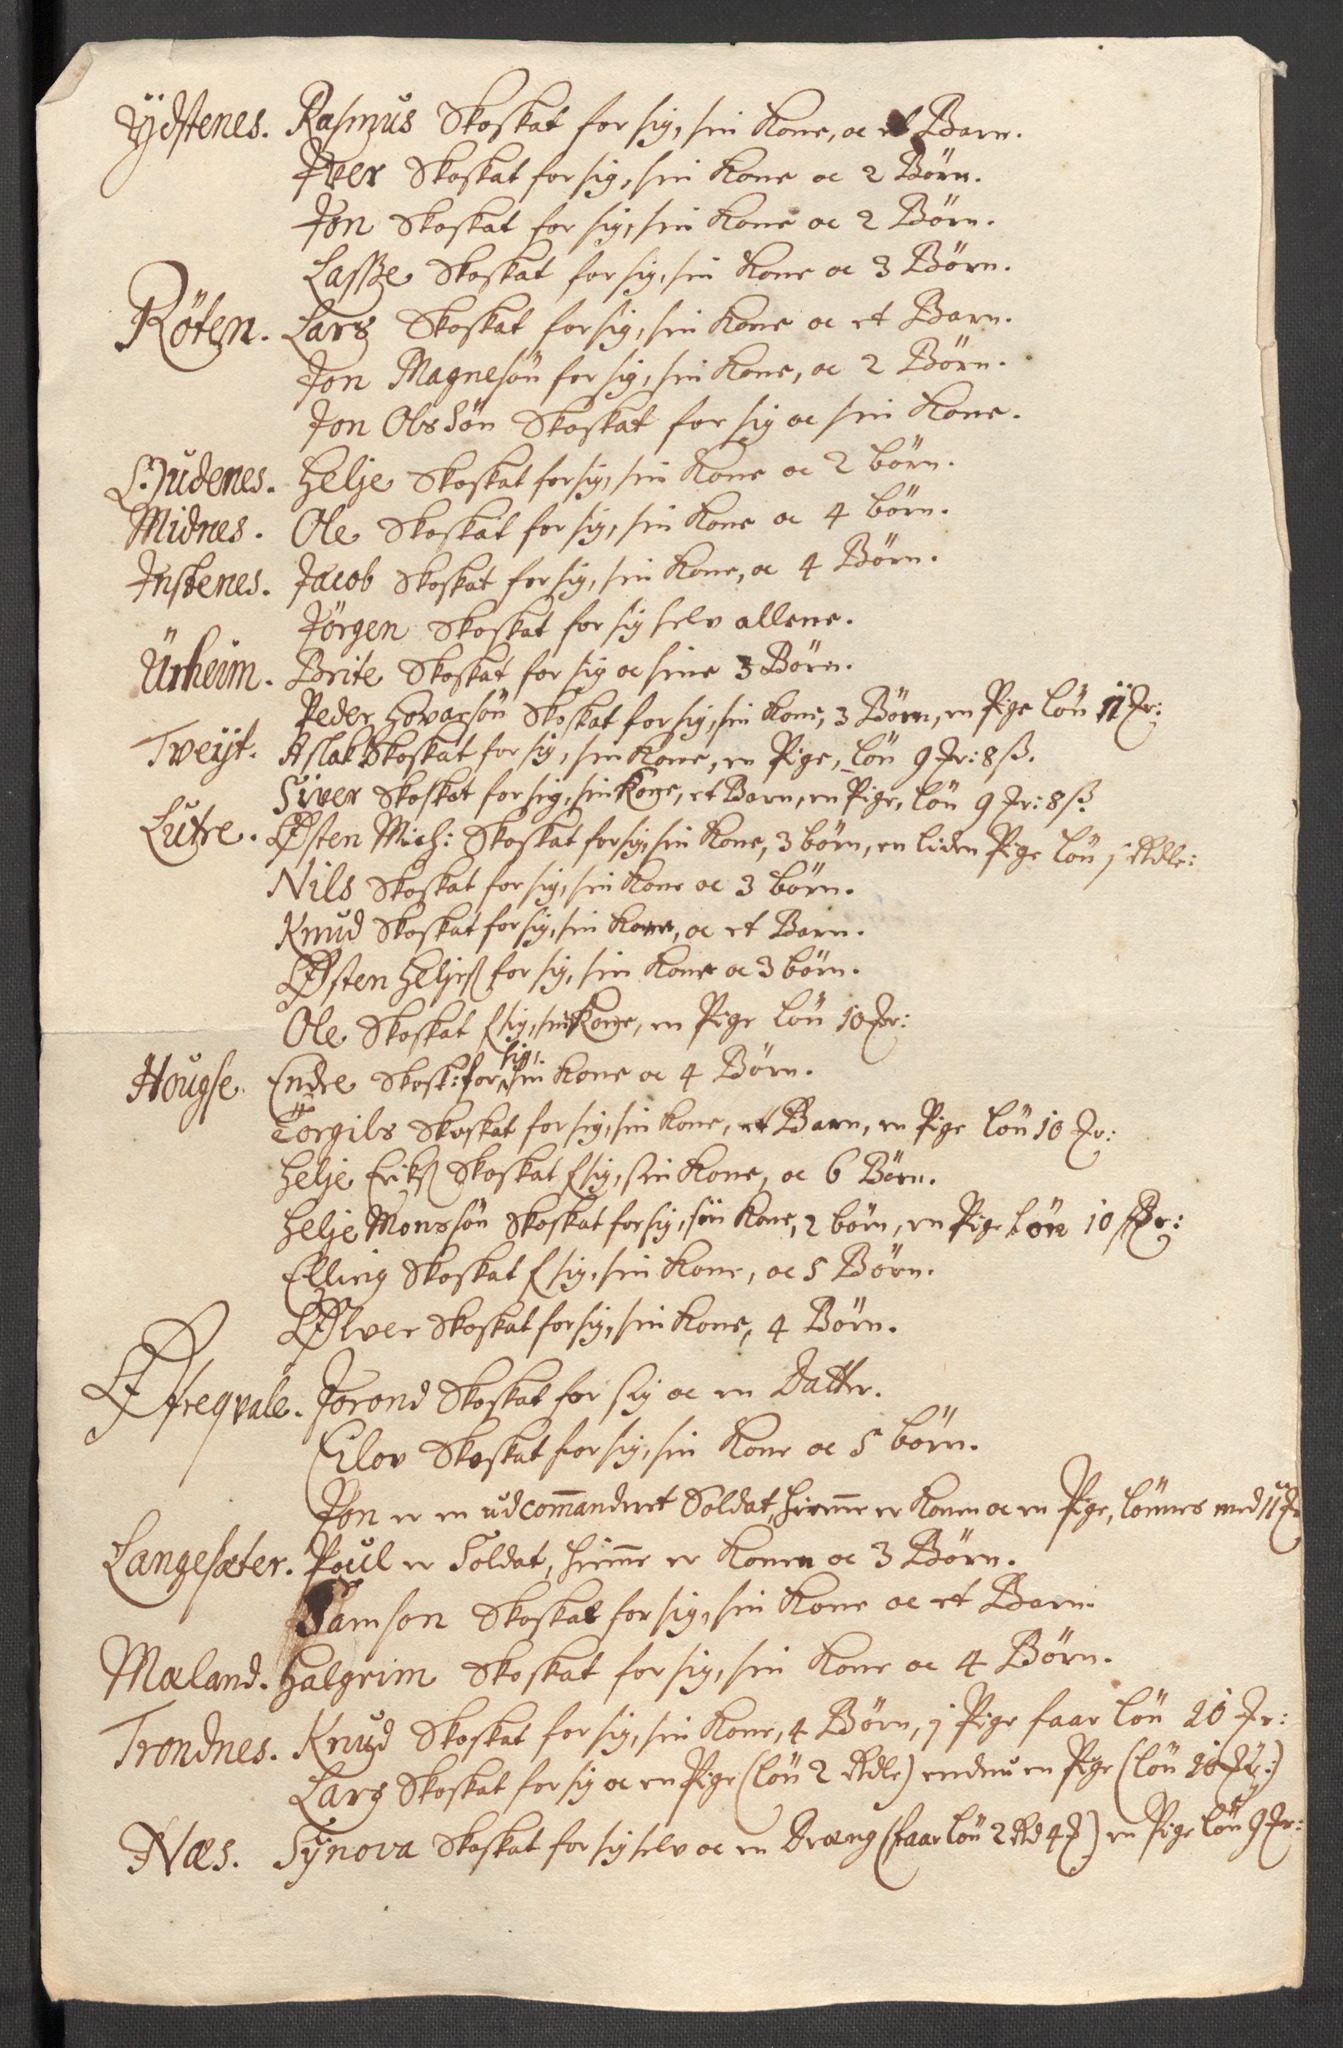 Ydstenes. Rasmus Skoskat for sig, sin Kone, oc et Barn.
Iver Skoskat for sig, sin Kone oc 2 Börn.
Jon Skoskat for sig, sin Kone oc 2 Börn.
Lasse Skoskat for sig, sin Kone oc 3 Börn.
Röten. Lars Skoskat for sig, sin Kone oc et Barn.
Jon Magnesön for sig, sin Kone, oc 2 Börn.
Jon Olssön Skoskat for sig oc sin Kone.
Ljudenes. Helje Skoskat for sig, sin Kone oc 2 börn.
Midnes. Ole Skoskat for sig, sin Kone oc 4 börn.
Instenes. Jacob Skoskat for sig, sin Kone, oc 4 Börn.
Jörgen Skoskat for sig selv allene.
Urheim. Brite Skoskat for sig oc sine 3 Börn.
Peder Hovarsön Skoskat for sig, sin Kone, 3 Börn, en Pige lön 11 Jr:
Tveyt. Aslak Skoskat for sig, sin Kone, en Pige, lön 9 Jr: 8 ß.
Siver Skoskat for sig, sin Kone, et Barn, en Pige, lön 9 Jr: 8 ß.
Lutre. Østen Mich: Skoskat for sig, sin Kone, 3 börn, en liden Pige lön 1 Rdle:
Nils Skoskat for sig, sin Kone oc 3 börn.
Knud Skoskat for sig, sin Kone, oc et Barn.
Østen Heljeß for sig, sin Kone oc 3 börn.
Ole Skoskat f sig, sin Kone, en Pige lön 10 Jr:
Hougse. Endre Skosk: for sig, sin Kone oc 4 Börn.
Torgils Skoskat for sig, sin Kone, et Barn, en Pige lön 10 Jr:
Helje Eriks Skoskat f sig, sin Kone, oc 6 Börn.
Helje Monssön Skoskat for sig, sin Kone, 2 börn, en Pige lön 10 Jr:
Elling Skoskat f sig, sin Kone, oc 5 Börn.
Ølver Skoskat for sig, sin Kone, 4 Börn.
Øfreqvale. Jorond Skoskat for sig oc en Datter.
Eilov Skoskat for sig, sin Kone oc 5 börn.
Jon er en udcommanderet Soldat, hiemme er Konen oc en Pige, lönnes med 11 Jr
Langesæter. Poul er Soldat, hiemme er Konen oc 3 Börn.
Samson Skoskat for sig, sin Kone oc et Barn.
Mæland. Halgrim Skoskat for sig, sin Kone oc 4 Börn.
Trondnes. Knud Skoskat for sig, sin Kone, 4 Börn, 1 Pige faar lön 10 Jr:
Lars Skoskat for sig oc en Pige (lön 2 Rdle) endnu en Pige (lön 10 Jr:)
Næs. Synova Skoskat for sig selv oc en Dræng (faar lön 2 Rd 4 J) en Pige lön 9 Jr: